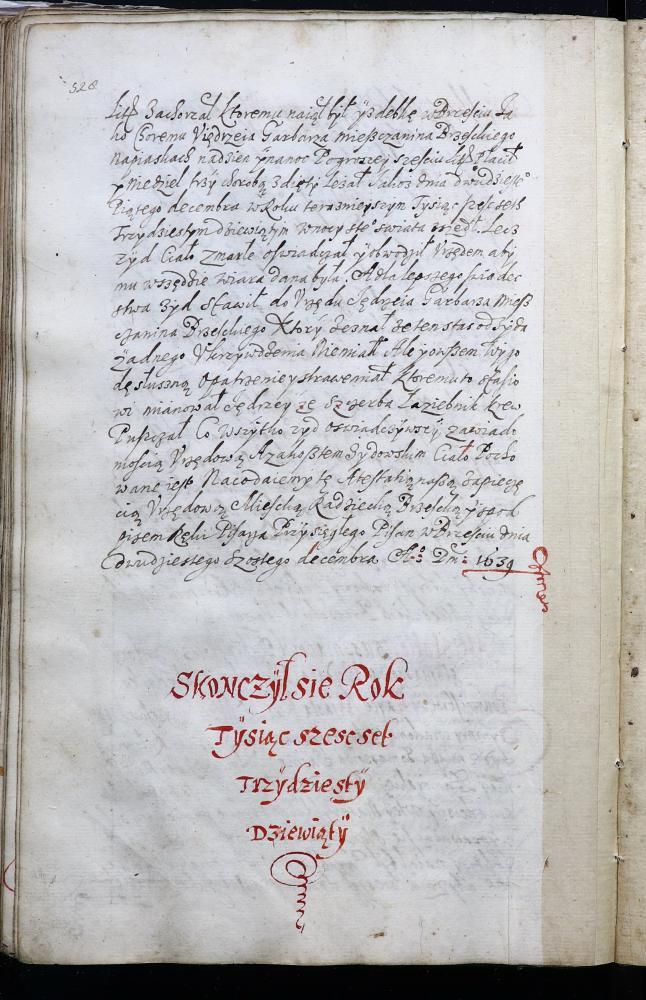 528
Zachorzał Ktoremu naiął był yzdebkę w Brzesciu Ja
ko Choremu V Jędrzeia Garbarza Mieszczanina Brzeskiego
Na piaskach na dzien y na noc Po groszey szesciu płacił
y Niedziel trzy chorobą zdięty leżał Jakoż dnia dwudzieste°
Piątego decembra w Roku teraznieyszym Tysiąc szescseth
Trzydziestym dziewiątym w nocy z te° swiata zszedł. Lecz
zyd Ciało zmarłe oswiadczał y obwodził Vrzędem aby
mu wszędzie wiara dana była. A dla lepszego swiadec
stwa zyd stawił do Vrzędu Jędrzeia Garbarza Miesz
czanina Brzeskiego Ktory zeznał że ten stas od żyda
żadnego Vkrzywdzenia Niemiał Ale y owszem wygo
dę słuszną opatrzenie y strawę miał Ktoremu to stasio
wi mianował Jędrzey że szczerba Łaziebnik krew
Puszczał Co wszytko zyd oswiadczywszy za wiado
moscią Vrzędową A za kosztem żydowskim Ciało Pocho
wane iest Na co daiemy tę Atestatią naszą za pieczę
cią Vrzędową Mieską Radziecką Brzeską y s pod
pisem Ręki Pisarza Przysięgłego Pisan w Brzesciu dnia
dwudziestego szostego decembra A°: Dni: 1639
Skonczył sie Rok
Tysiąc szescset
Trzydziesty
Dziewiąty